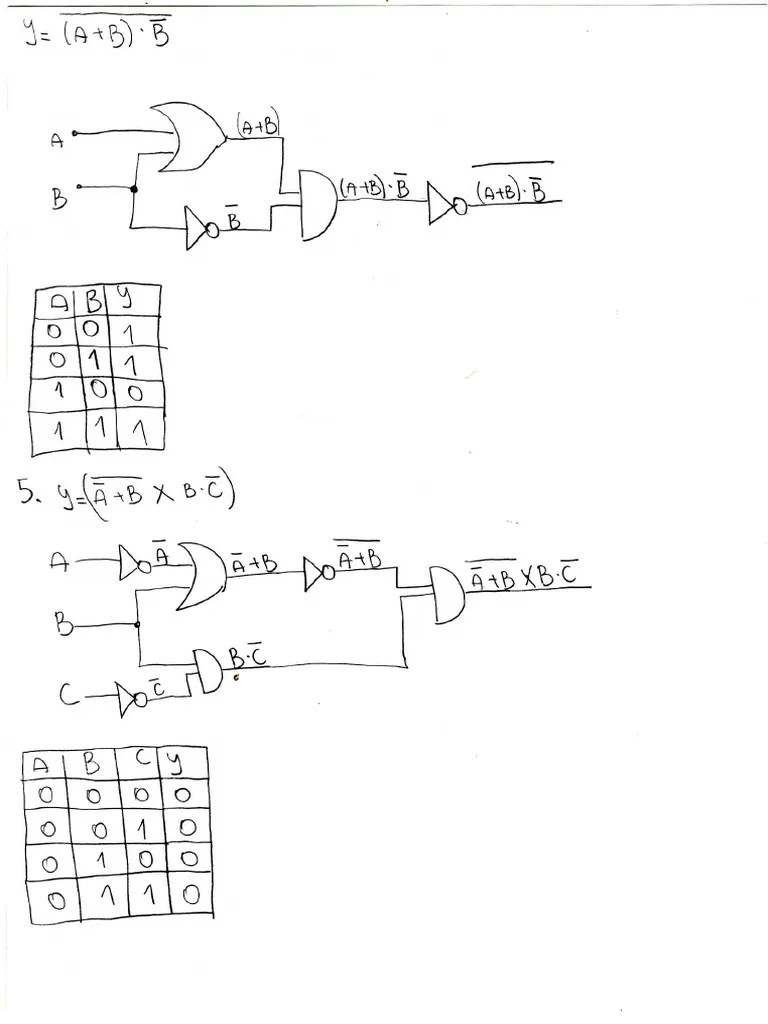 y= \overline{(A+B)·\overline{B}}
A (A+B)
B \overline{B} (A+B)·\overline{B} \overline{(A+B)·\overline{B}}
A B y
0 0 1
0 1 1
1 0 0
1 1 1
5. y=(\overline{\overline{A}+B} X B·\overline{C})
A \overline{A} \overline{A}+B \overline{\overline{A}+B} \overline{\overline{A}+B} X B·\overline{C}
B
B·\overline{C}
C \overline{C}
A B C y
0 0 0 0
0 0 1 0
0 1 0 0
0 1 1 0